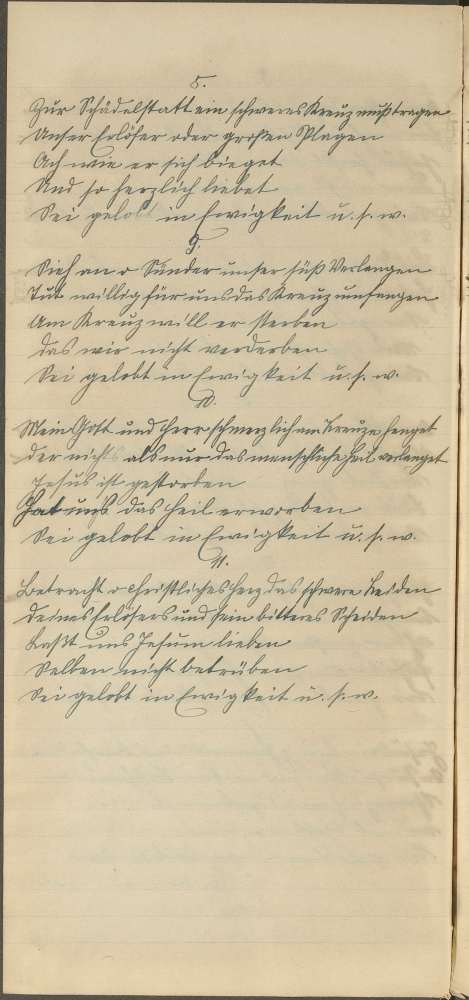 8.
Zur Schädelstatt ein schweres Kreuz muß tragen
Unser Erlöser oder großen Plagen
Ach wie er sich bieget
Und so herzlich liebet
Sei gelobt in Ewigkeit u. s. w.
9.
Sieh an o Sünder unser süß Verlangen
Tut willig für uns das Kreuz umfangen
Am Kreuz will er sterben
das wir nicht verderben
Sei gelobt in Ewigkeit u. s. w.
10.
Mein Gott und Herr schmerzlich am Kreuze henget
der nichts als nur das menschliche Heil verlenget
Jesus ist gestorben
Hat uns das Heil erworben
Sei gelobt in Ewigkeit u. s. w.
11.
Betracht o christliches Herz das schwere Leiden
deines Erlösers und sein bitteres Scheiden
Laßt uns Jesum lieben
Selben nicht betrüben
Sei gelobt in Ewigkeit u. s. w.